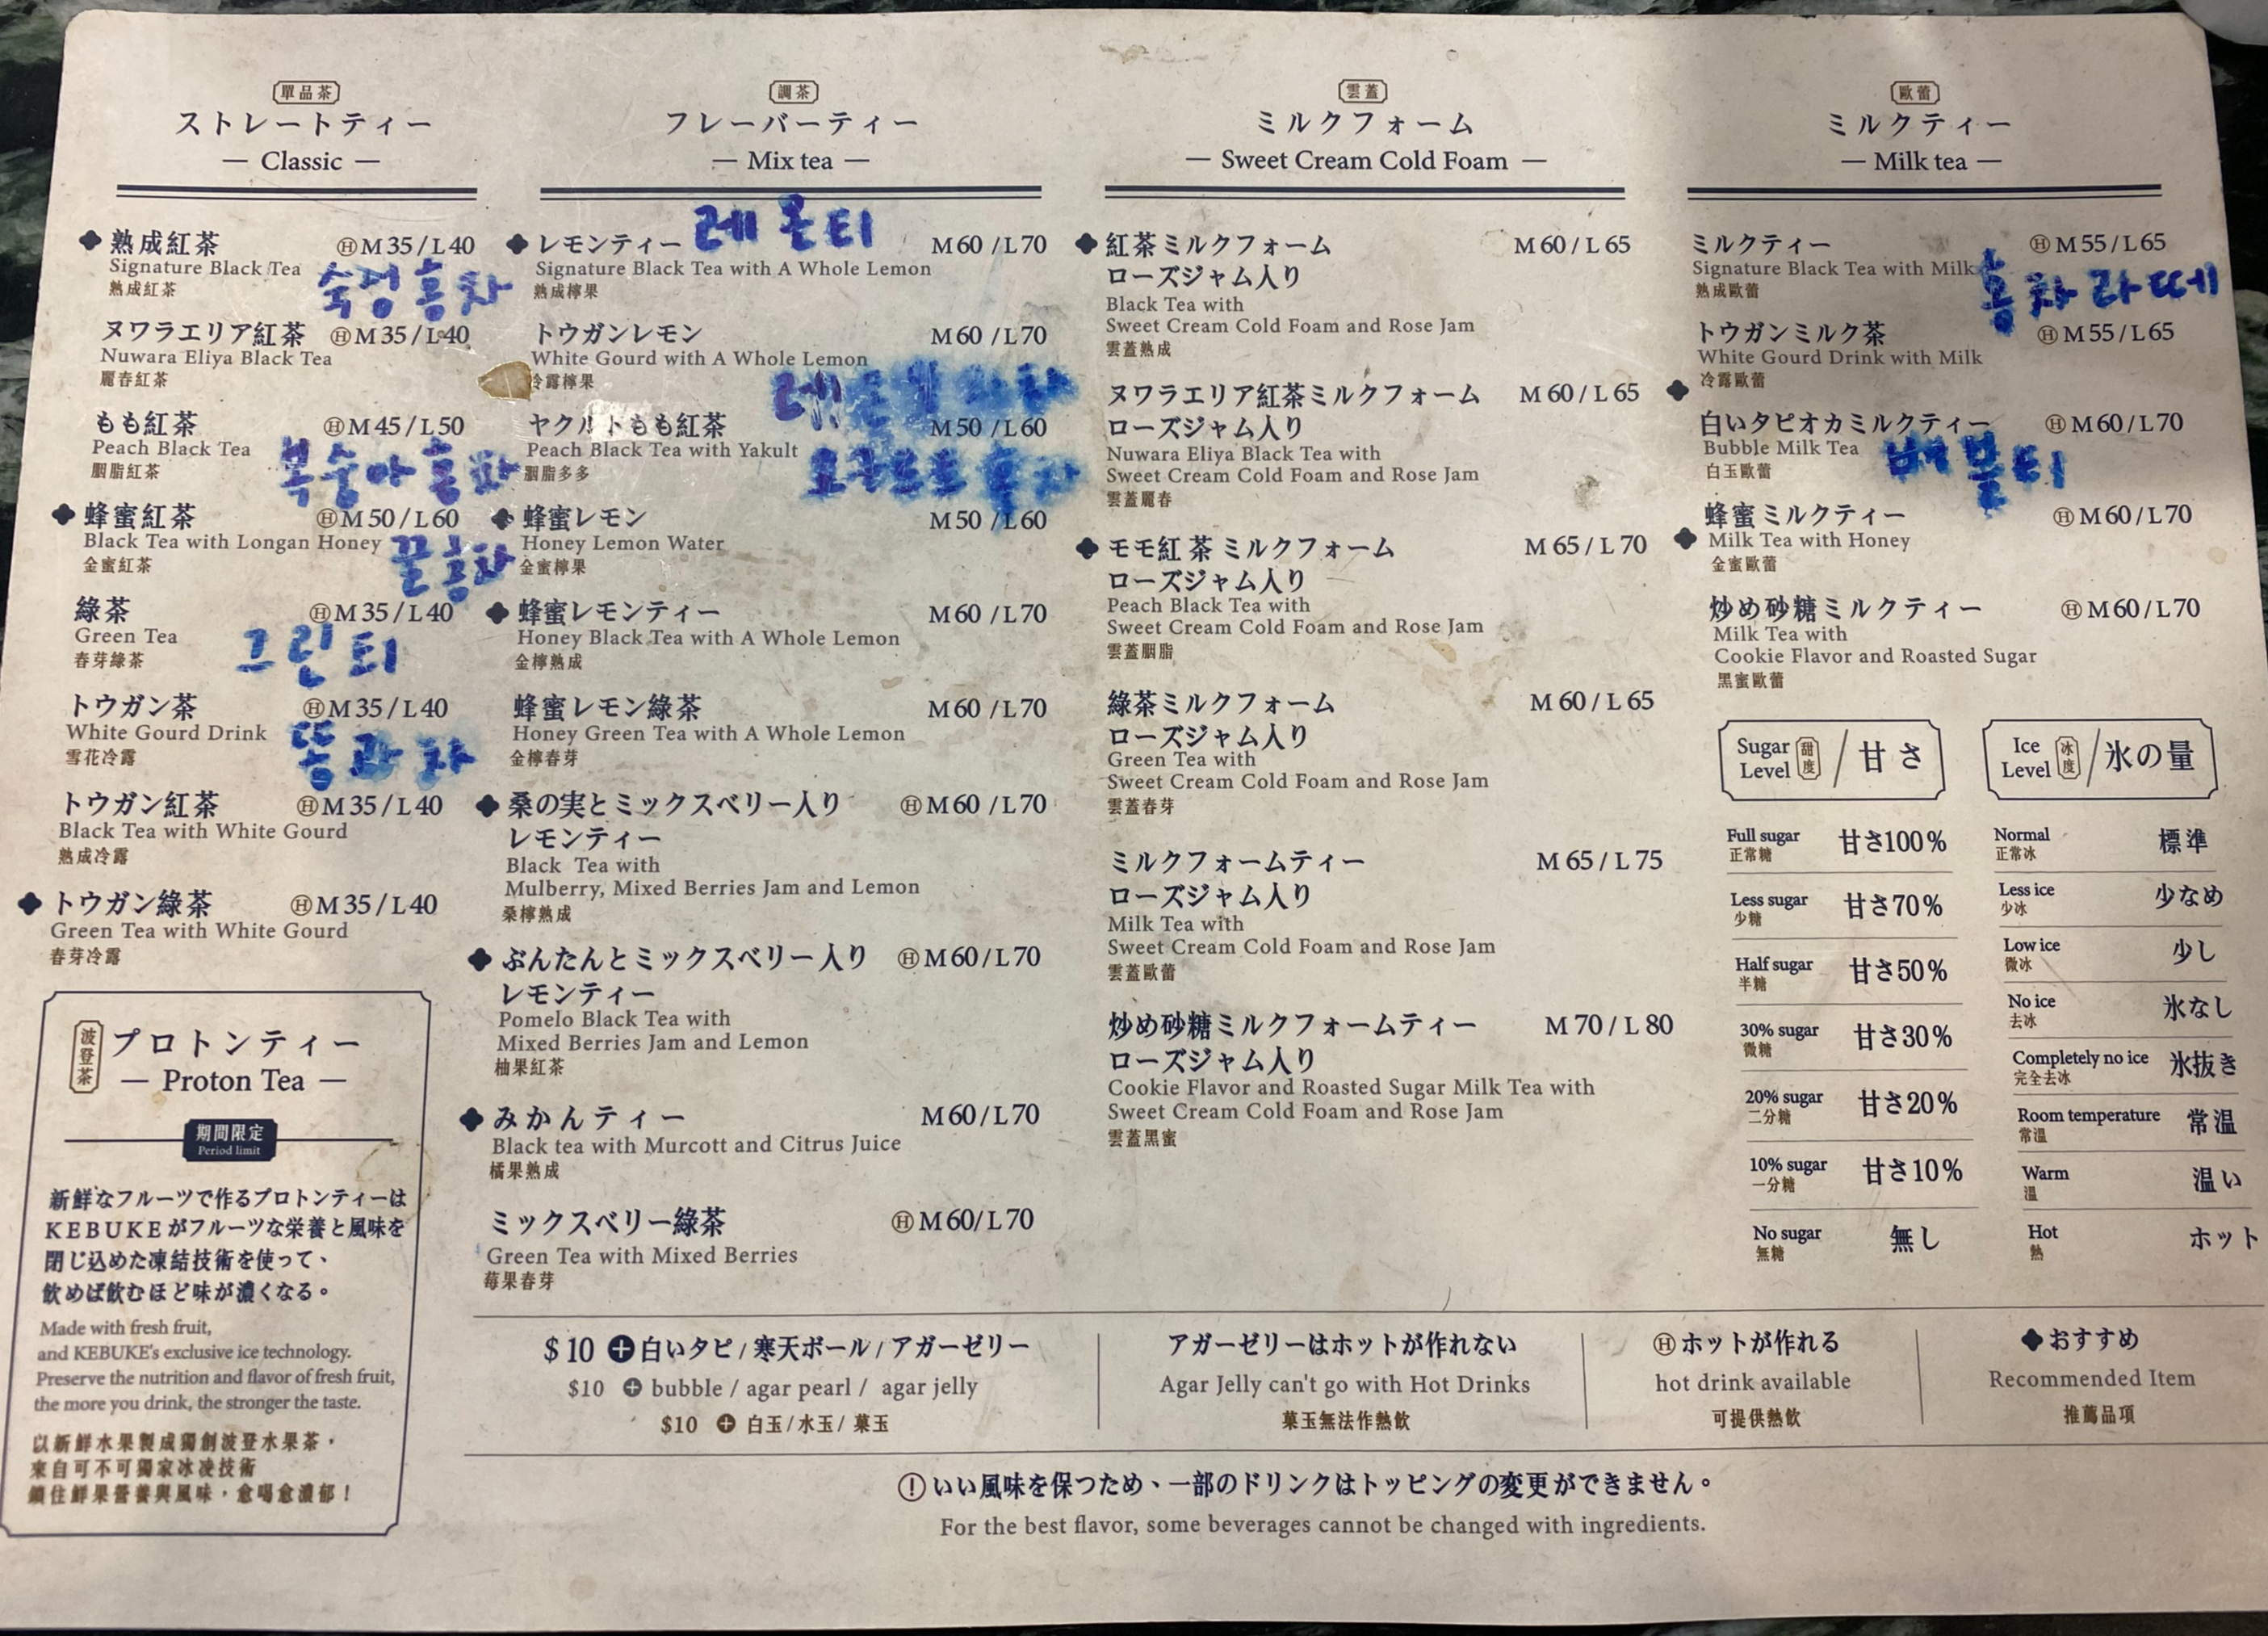 單品茶
ストレートティー
— Classic —
熟成紅茶 ⒽM 35 / L 40
Signature Black Tea
熟成紅茶
숙성 홍차
ヌワラエリア紅茶 ⒽM 35 / L 40
Nuwara Eliya Black Tea
麗春紅茶
もも紅茶 ⒽM 45 / L 50
Peach Black Tea
胭脂紅茶
복숭아 홍차
蜂蜜紅茶 ⒽM 50 / L 60
Black Tea with Longan Honey
金蜜紅茶
꿀홍차
綠茶 ⒽM 35 / L 40
Green Tea
春芽綠茶
그린티
トウガン茶 ⒽM 35 / L 40
White Gourd Drink
雪花冷露
トウガン紅茶 ⒽM 35 / L 40
Black Tea with White Gourd
熟成冷露
トウガン綠茶 ⒽM 35 / L 40
Green Tea with White Gourd
春芽冷露
波登茶
プロトンティー
— Proton Tea —
期間限定
Period limit
新鮮なフルーツで作るプロトンティーは
KEBUKEがフルーツな栄養と風味を
閉じ込めた凍結技術を使って、
飲めば飲むほど味が濃くなる。
Made with fresh fruit,
and KEBUKE's exclusive ice technology.
Preserve the nutrition and flavor of fresh fruit,
the more you drink, the stronger the taste.
以新鮮水果製成獨創波登水果茶，
來自可不可獨家冰凌技術
鎖住鮮果營養與風味，愈喝愈濃郁！
調茶
フレーバーティー
— Mix tea —
レモンティー 레몬티 M 60 / L 70
Signature Black Tea with A Whole Lemon
熟成檸果
トウガンレモン M 60 / L 70
White Gourd with A Whole Lemon
冷露檸果
ヤクルトもも紅茶 M 50 / L 60
Peach Black Tea with Yakult
胭脂多多
蜂蜜レモン M 50 / L 60
Honey Lemon Water
金蜜檸果
蜂蜜レモンティー M 60 / L 70
Honey Black Tea with A Whole Lemon
金檸熟成
蜂蜜レモン綠茶 M 60 / L 70
Honey Green Tea with A Whole Lemon
金檸春芽
桑の実とミックスベリー入り ⒽM 60 / L 70
レモンティー
Black Tea with
Mulberry, Mixed Berries Jam and Lemon
桑檸熟成
ぶんたんとミックスベリー入り ⒽM 60 / L 70
レモンティー
Pomelo Black Tea with
Mixed Berries Jam and Lemon
柚果紅茶
みかんティー M 60 / L 70
Black tea with Murcott and Citrus Juice
橘果熟成
ミックスベリー綠茶 ⒽM 60 / L 70
Green Tea with Mixed Berries
莓果春芽
雲蓋
ミルクフォーム
— Sweet Cream Cold Foam —
紅茶ミルクフォーム M 60 / L 65
ローズジャム入り
Black Tea with
Sweet Cream Cold Foam and Rose Jam
雲蓋熟成
ヌワラエリア紅茶ミルクフォーム M 60 / L 65
ローズジャム入り
Nuwara Eliya Black Tea with
Sweet Cream Cold Foam and Rose Jam
雲蓋麗春
モモ紅茶ミルクフォーム M 65 / L 70
ローズジャム入り
Peach Black Tea with
Sweet Cream Cold Foam and Rose Jam
雲蓋胭脂
綠茶ミルクフォーム M 60 / L 65
ローズジャム入り
Green Tea with
Sweet Cream Cold Foam and Rose Jam
雲蓋春芽
ミルクフォームティー M 65 / L 75
ローズジャム入り
Milk Tea with
Sweet Cream Cold Foam and Rose Jam
雲蓋歐蕾
炒め砂糖ミルクフォームティー M 70 / L 80
ローズジャム入り
Cookie Flavor and Roasted Sugar Milk Tea with
Sweet Cream Cold Foam and Rose Jam
雲蓋黑蜜
歐蕾
ミルクティー
— Milk tea —
ミルクティー ⒽM 55 / L 65
Signature Black Tea with Milk
熟成歐蕾
홍차라떼
トウガンミルク茶 ⒽM 55 / L 65
White Gourd Drink with Milk
冷露歐蕾
白いタピオカミルクティー ⒽM 60 / L 70
Bubble Milk Tea
白玉歐蕾
버블티
蜂蜜ミルクティー ⒽM 60 / L 70
Milk Tea with Honey
金蜜歐蕾
炒め砂糖ミルクティー ⒽM 60 / L 70
Milk Tea with
Cookie Flavor and Roasted Sugar
黑蜜歐蕾
Sugar Level 甜度 / 甘さ
Full sugar 正常糖 甘さ100%
Less sugar 少糖 甘さ70%
Half sugar 半糖 甘さ50%
30% sugar 微糖 甘さ30%
20% sugar 二分糖 甘さ20%
10% sugar 一分糖 甘さ10%
No sugar 無糖 無し
Ice Level 冰度 / 氷の量
Normal 正常冰 標準
Less ice 少冰 少なめ
Low ice 微冰 少し
No ice 去冰 氷なし
Completely no ice 完全去冰 氷抜き
Room temperature 常溫 常温
Warm 溫 温い
Hot 熱 ホット
$10 ⊕ 白いタピ / 寒天ボール / アガーゼリー
$10 ⊕ bubble / agar pearl / agar jelly
$10 ⊕ 白玉 / 水玉 / 菓玉
アガーゼリーはホットが作れない
Agar Jelly can't go with Hot Drinks
菓玉無法作熱飲
Ⓗホットが作れる
hot drink available
可提供熱飲
おすすめ
Recommended Item
推薦品項
! いい風味を保つため、一部のドリンクはトッピングの変更ができません。
For the best flavor, some beverages cannot be changed with ingredients.